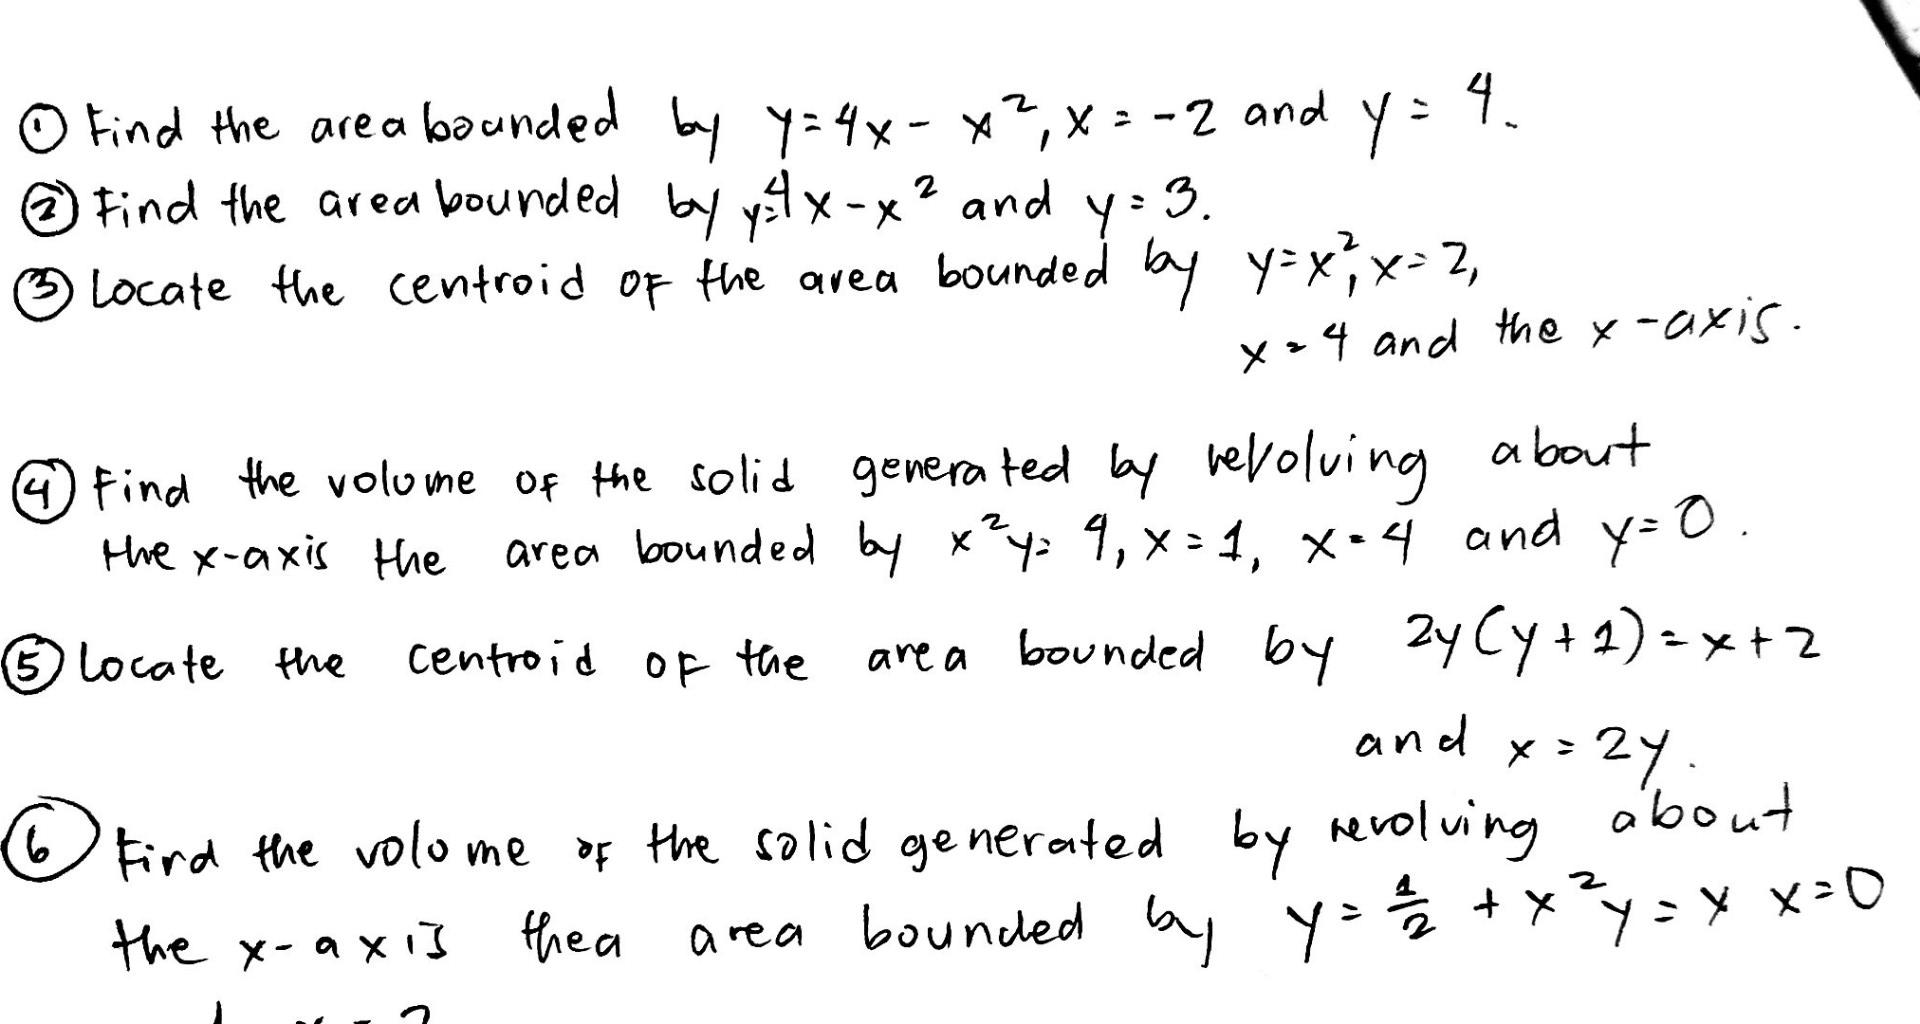 ① Find the area bounded by y=4x-x², x=-2 and y=4.
② Find the area bounded by y=4x-x² and y=3.
③ Locate the centroid of the area bounded by y=x², x=2,
x=4 and the x-axis.
④ Find the volume of the solid generated by revolving about
the x-axis the area bounded by x²y=4, x=1, x=4 and y=0.
⑤ Locate the centroid of the area bounded by 2y(y+1)=x+2
and x=2y.
⑥ Find the volume of the solid generated by revolving about
the x-axis thea area bounded by y=1/2+x² y=x x=0